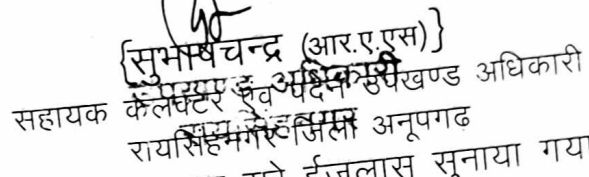 {सुभाषचन्द्र (आर.ए.एस)}
सहायक कलेक्टर एवं पदेन उपखण्ड अधिकारी
रायसिंहनगर जिला अनूपगढ
ईजलास सुनाया गया